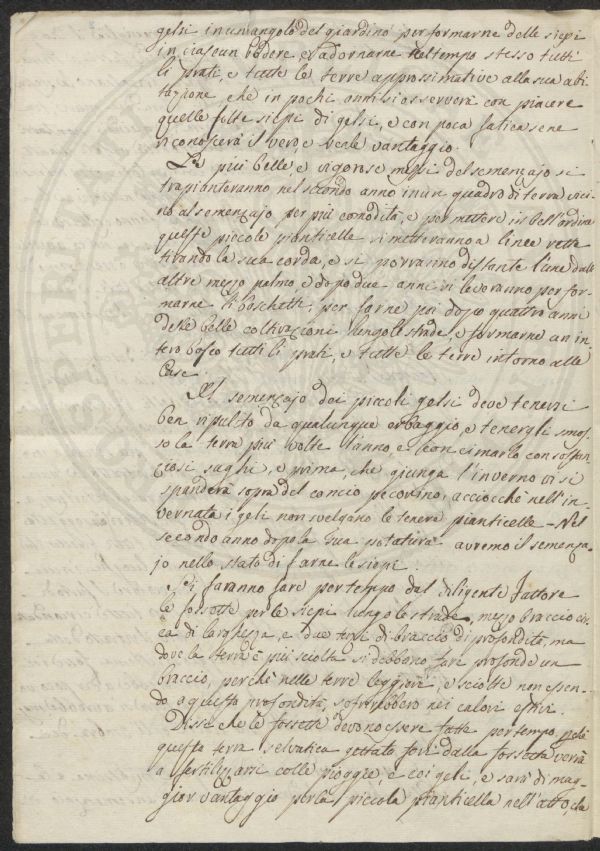 gelsi in un angolo del giardino per formarne delle siepi
in ciascun podere, ed adornarne nel tempo stesso tutti
li prati, e tutte le terre approssimative alla sua abi
tazione, che in pochi anni si osserverà con piacere
quelle folte siepi di gelsi, e con poca fatica se ne
riconoscerà il vero, e reale vantaggio.
Le più belle, e vigorose messi del semenzajo si
trapianteranno nel secondo anno in un quadro di terra vici
no al semenzajo, per più comodità, e per mettere in bell'ordine
queste piccole pianticelle si metteranno a linee rette
tirando la sua corda, e si porranno distante l'une dalle
altre mezzo palmo, e dopo due anni si leveranno per for
marne li boschetti, per farne poi dopo quattro anni
delle belle coltivazioni lungo le strade, e formarne un in
tero bosco tutti li prati, e tutte le terre intorno alle
Case.
Il semenzajo dei piccoli gelsi deve tenersi
ben ripulito da qualunque erbaggio, e tenergli smos
so la terra più volte l'anno, e concimarlo con sostan
ziosi sughi, e prima, che giunga l'inverno vi si
spanderà sopra del concio pecorino, acciocchè nell'in
vernata i geli non svelgano le tenere pianticelle - Nel
secondo anno dopo la sua natura avremo il semenza
jo nello stato di farne le siepi.
Si faranno fare per tempo dal diligente Fattore
le fossette per le siepi lungo le strade, mezzo braccio cir
ca di larghezza, e due terzi di braccio di profondità, ma
dove la terra è più sciolta si debbono fare profonde un
braccio, perchè nelle terre leggiere, e sciolte non essen
do a questa profondità, soffrirebbero nei calori estivi.
Dissi che le fossette devono essere fatte per tempo, perchè
questa terra selvatica gettata fori dalla fossetta verrà
a fertilizzarsi colle pioggie, e coi geli, e sarà di mag
gior vantaggio per la piccola pianticella nell'atto, che